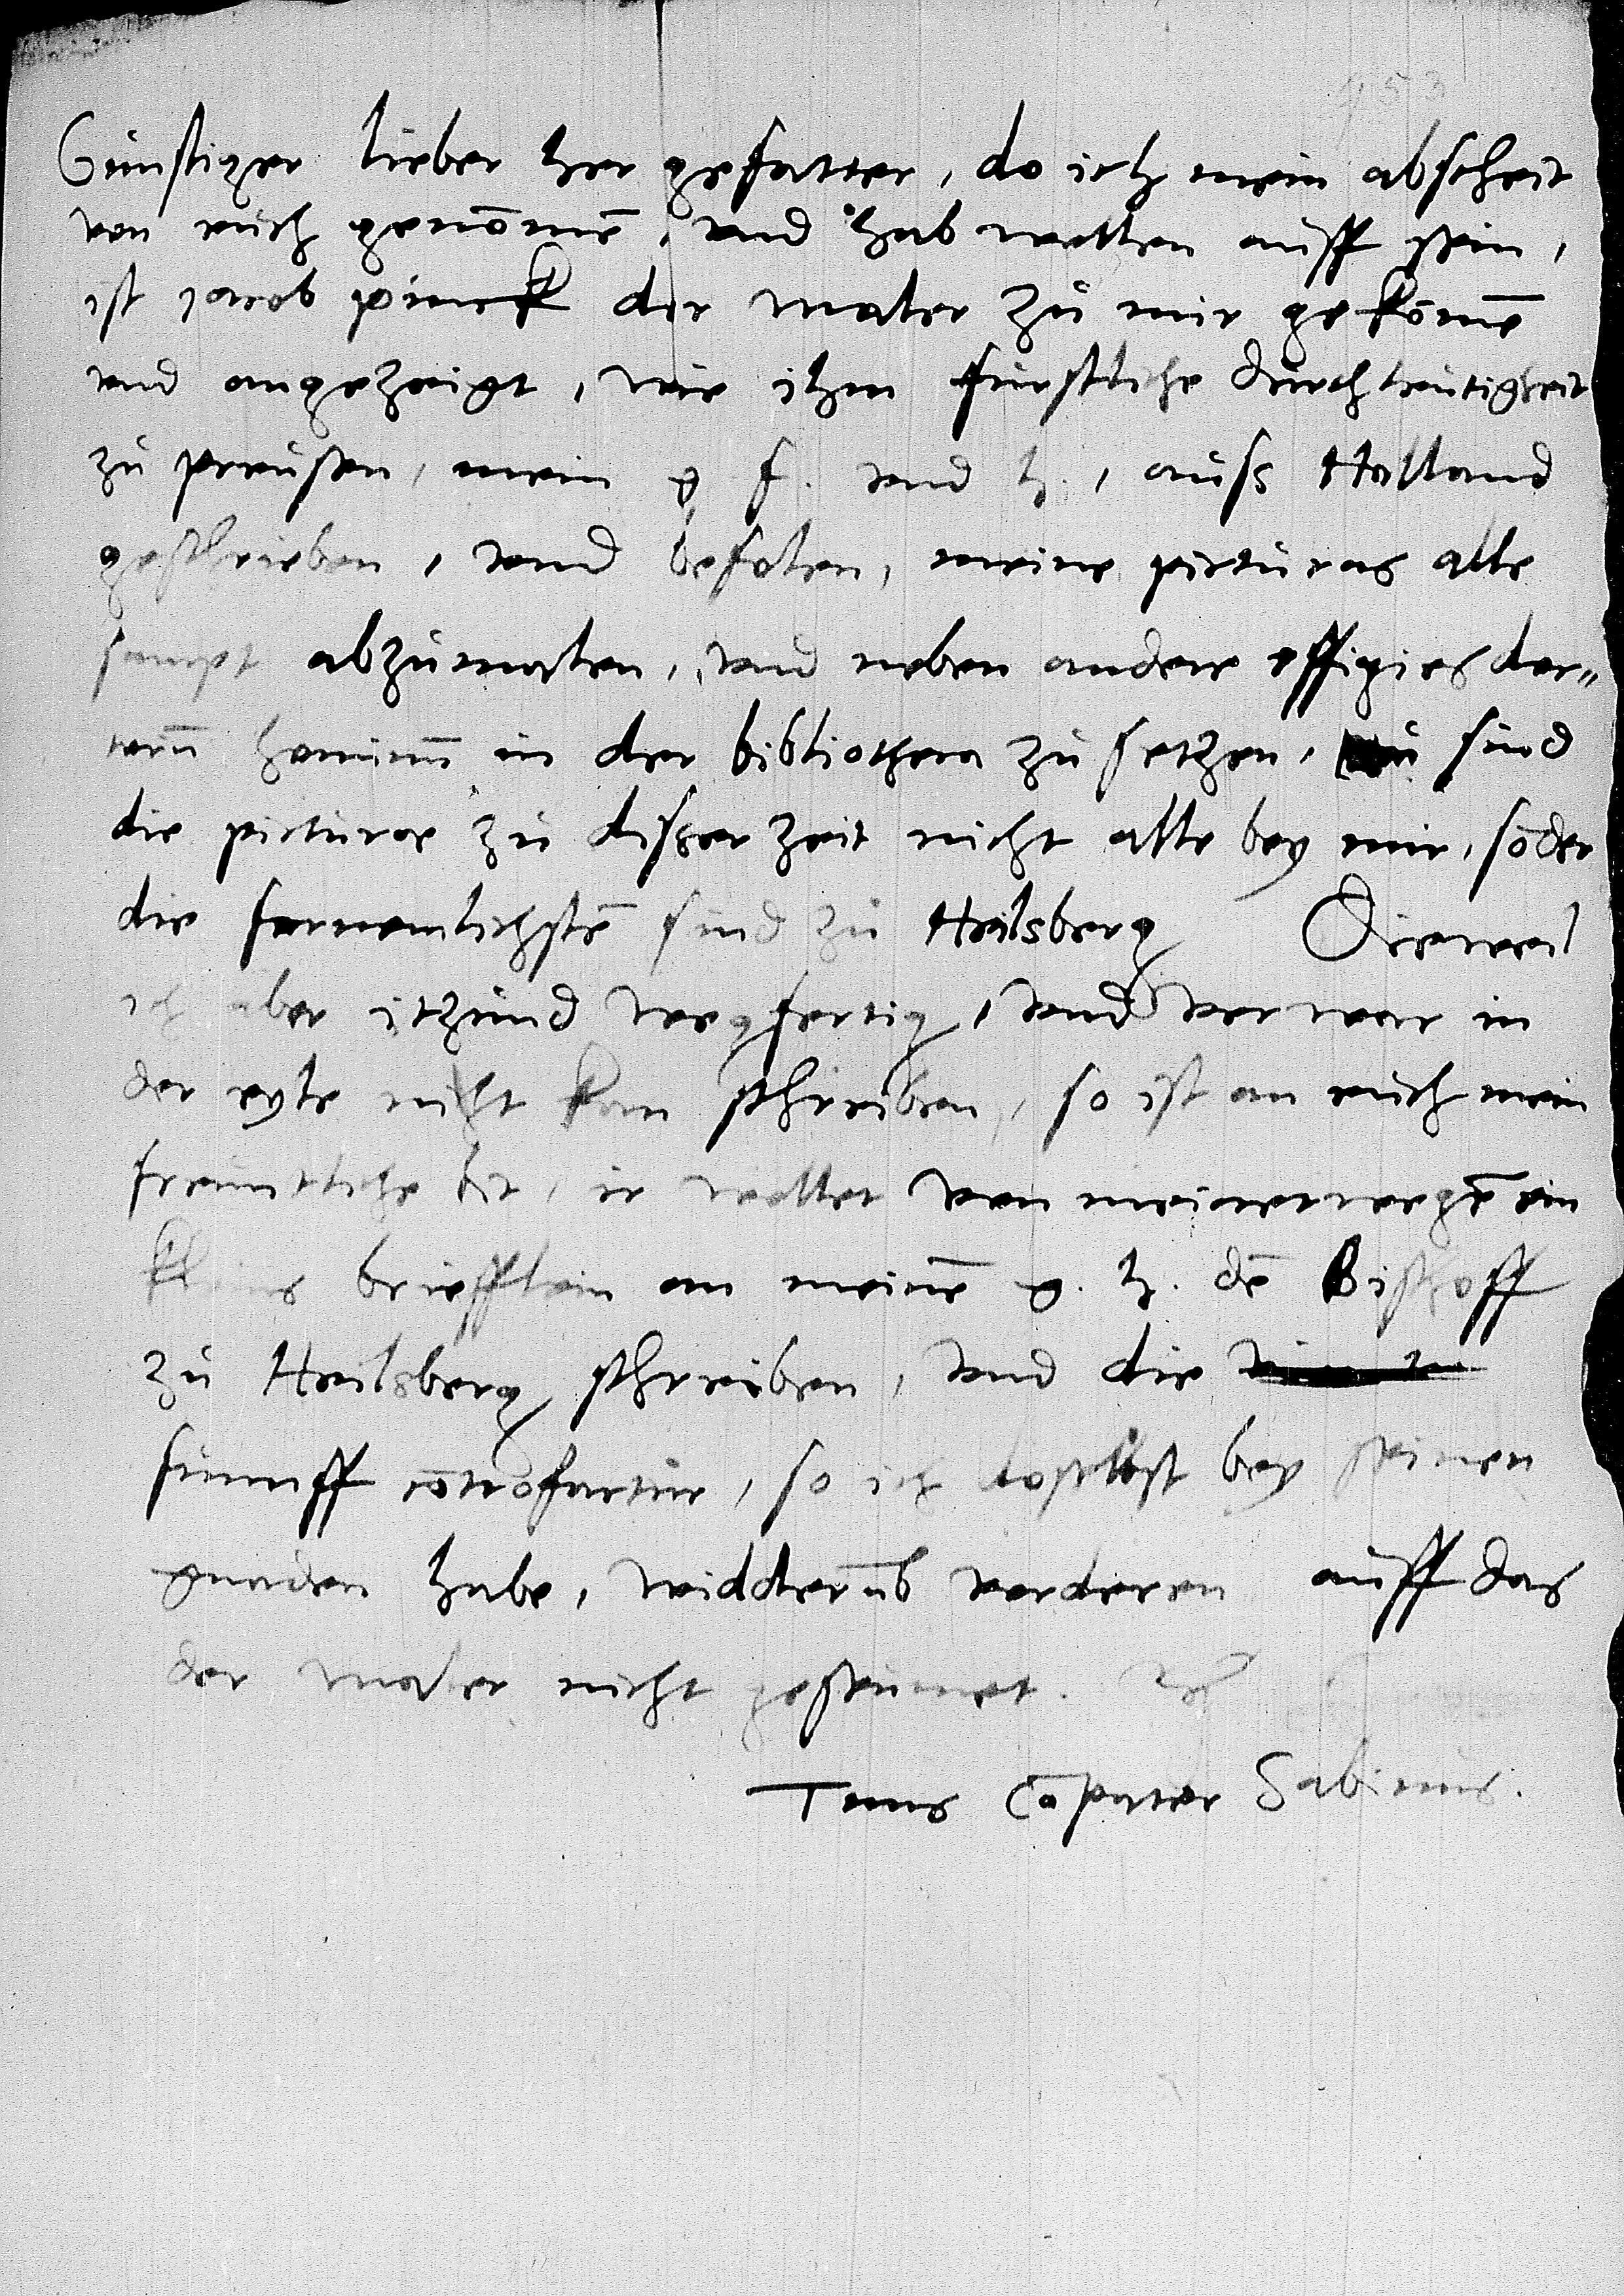 953
Günstiger lieber her gefatter, do ich mein abscheit
von euch genōmē, vnd hab wollen auff sein,
ist iacob pinck der maler zu mir gekōmē
vnd angezeigt, wie ihm furstliche durchleutigkeit
zu preussen, mein g f. vnd h., auss Holland
geschrieben, vnd befolen, meine picturas alle
sampt abzumalen, vnd neben andere effigies doc„
torū hominū in der bibliotheca zu setzen, sind
die picturae zu disser zeit nicht alle bey mir, sōder
die fornemlichstē sind zu Heilsberg Dieweil
ich aber itzund wegfertig, vnd vor war in
der eyle nicht kan schreiben, so ist an euch mein
freuntliche bit, ir wollet von meinetwegē ein
kleins briefflein an meinē g. h. dē Bischoff
zu Heilsberg schreiben, vnd die
funff cōtrofactur, so ich doselbst bey seinen
gnaden habe, widderūb vorderen auff das
der maler nicht geseumet.
Tuus Cōpater Sabinus.